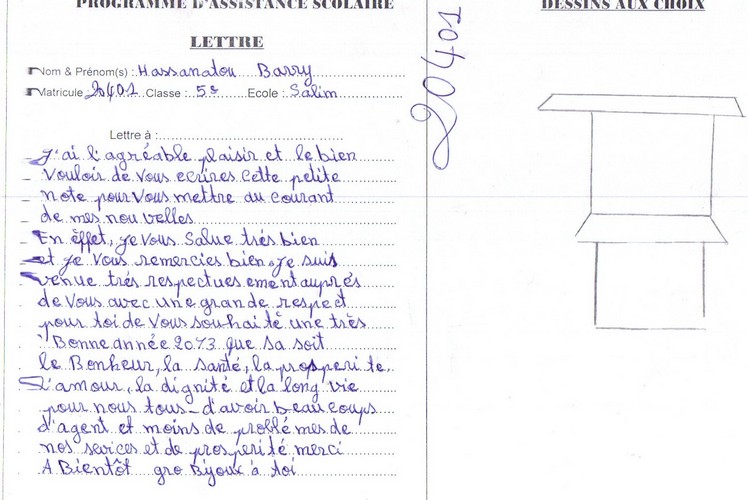 PROGRAMME D'ASSISTANCE SCOLAIRE
LETTRE
Nom & Prénom(s) : Hassanatou Barry
Matricule 20401 Classe : 5e Ecole : Salim
Lettre à :
J'ai l'agréable plaisir et le bien
Vouloir de vous ecrires cette petite
note pour vous mettre au courant
de mes nouvelles
En effet, je vous salue très bien
et je vous remercies bien. je suis
venue très respectuesement auprès
de vous avec une grande respect
pour toi de vous souhaité une très
Bonne année 2013 que sa soit
le Bonheur, la santé, la prosperite
L'amour, la dignité et la long vie
pour nous tous - d'avoir beaucoups
d'agent et moins de problémes de
nos sevices et de prosperité merci
A Bientôt gro Bijoux à toi
20401
DESSINS AUX CHOIX